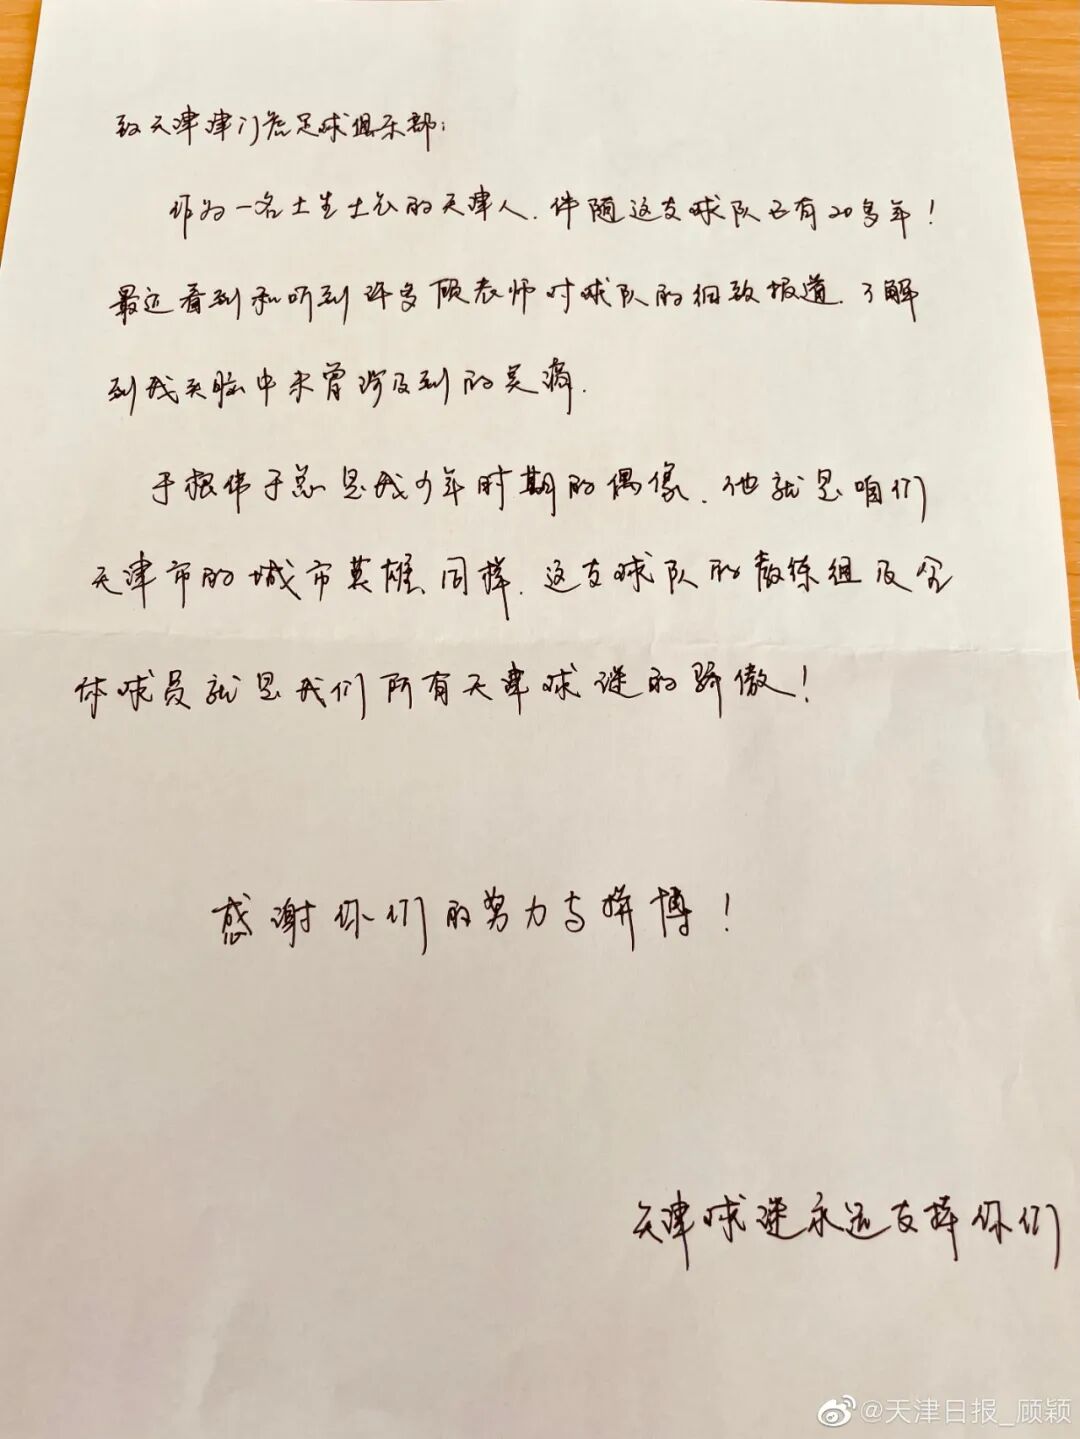 致天津津门虎足球俱乐部：
作为一名土生土长的天津人，伴随这支球队已有20多年！
最近看到和听到许多顾老师对球队的细致报道，了解
到我头脑中未曾涉及到的关痛．
于根伟于总是我少年时期的偶像，他就是咱们
天津市的城市英雄同样，这支球队的教练组及全
体球员就是我们所有天津球迷的骄傲！
感谢你们的努力与拼博！
天津球迷永远支持你们
@天津日报_顾颖